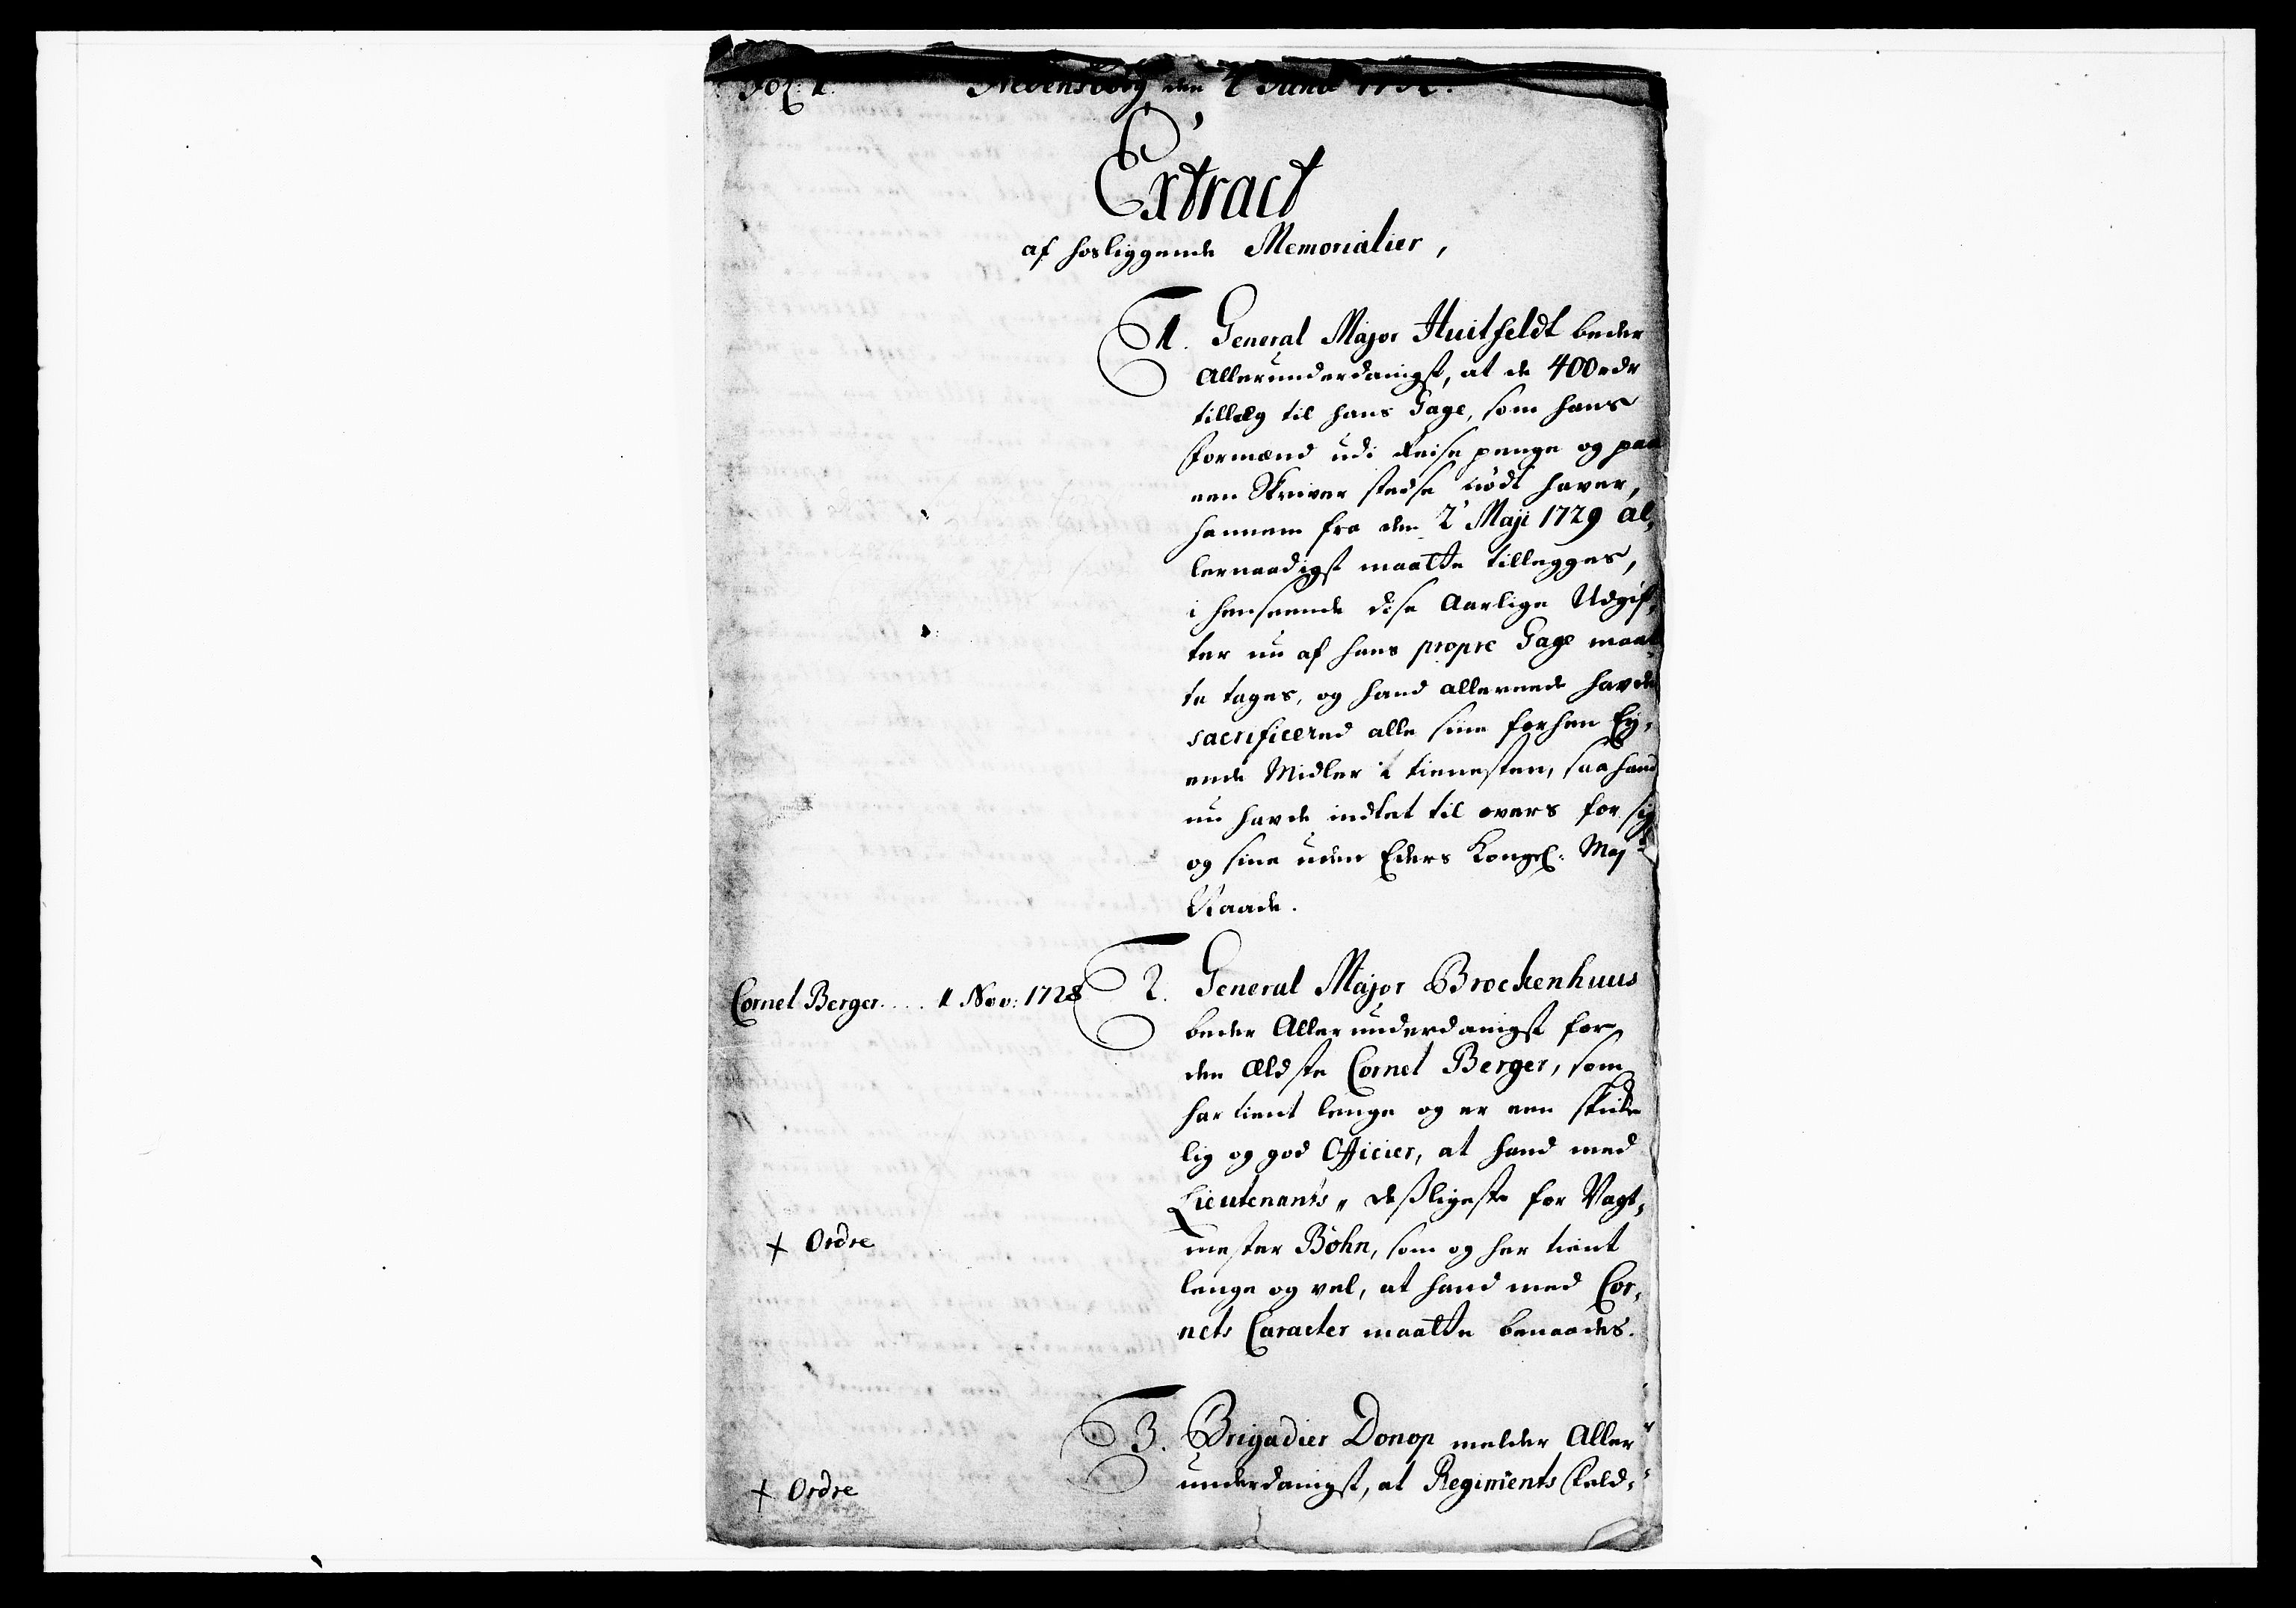 Fol: 1.
den 2 Junii
Extract
af hosliggende Memorialier,
1. General Major Huitfeldt beder
Allerunderdanigst, at de 400 rdr
tillæg til hans Gage, som hans
Formænd udi Reise penge og paa
een Skriver stedse nödt haver,
hannem fra den 2 Maji 1729 al,
lernaadigst maatte tillegges,
i henseende disse Aarlige Udgif,
ter nu af hans propre Gage maat
te tages, og hand allerede havde
sacrificered alle sine forhen Ey,
ende Midler i tienesten, saa hand
nu havde indtet til overs for sig
og sine uden Eders Kongel: Majts
Naade.
Cornet Berger.... 1 Nov: 1728
2. General Major Brockenhuus
beder Allerunderdanigst for
den Ældste Cornet Berger, som
har tient lenge og er een skike
lig og god Officier, at hand med
Lieutenants,, desligeste for Vagt,
+ Ordre
mester Böhn, som og har tient
lenge og vel, at hand med Cor,
nets Caracter maatte benaades.
3. Brigadier Donop melder Aller
underdanigst, at Regiments Feld,
+ Ordre